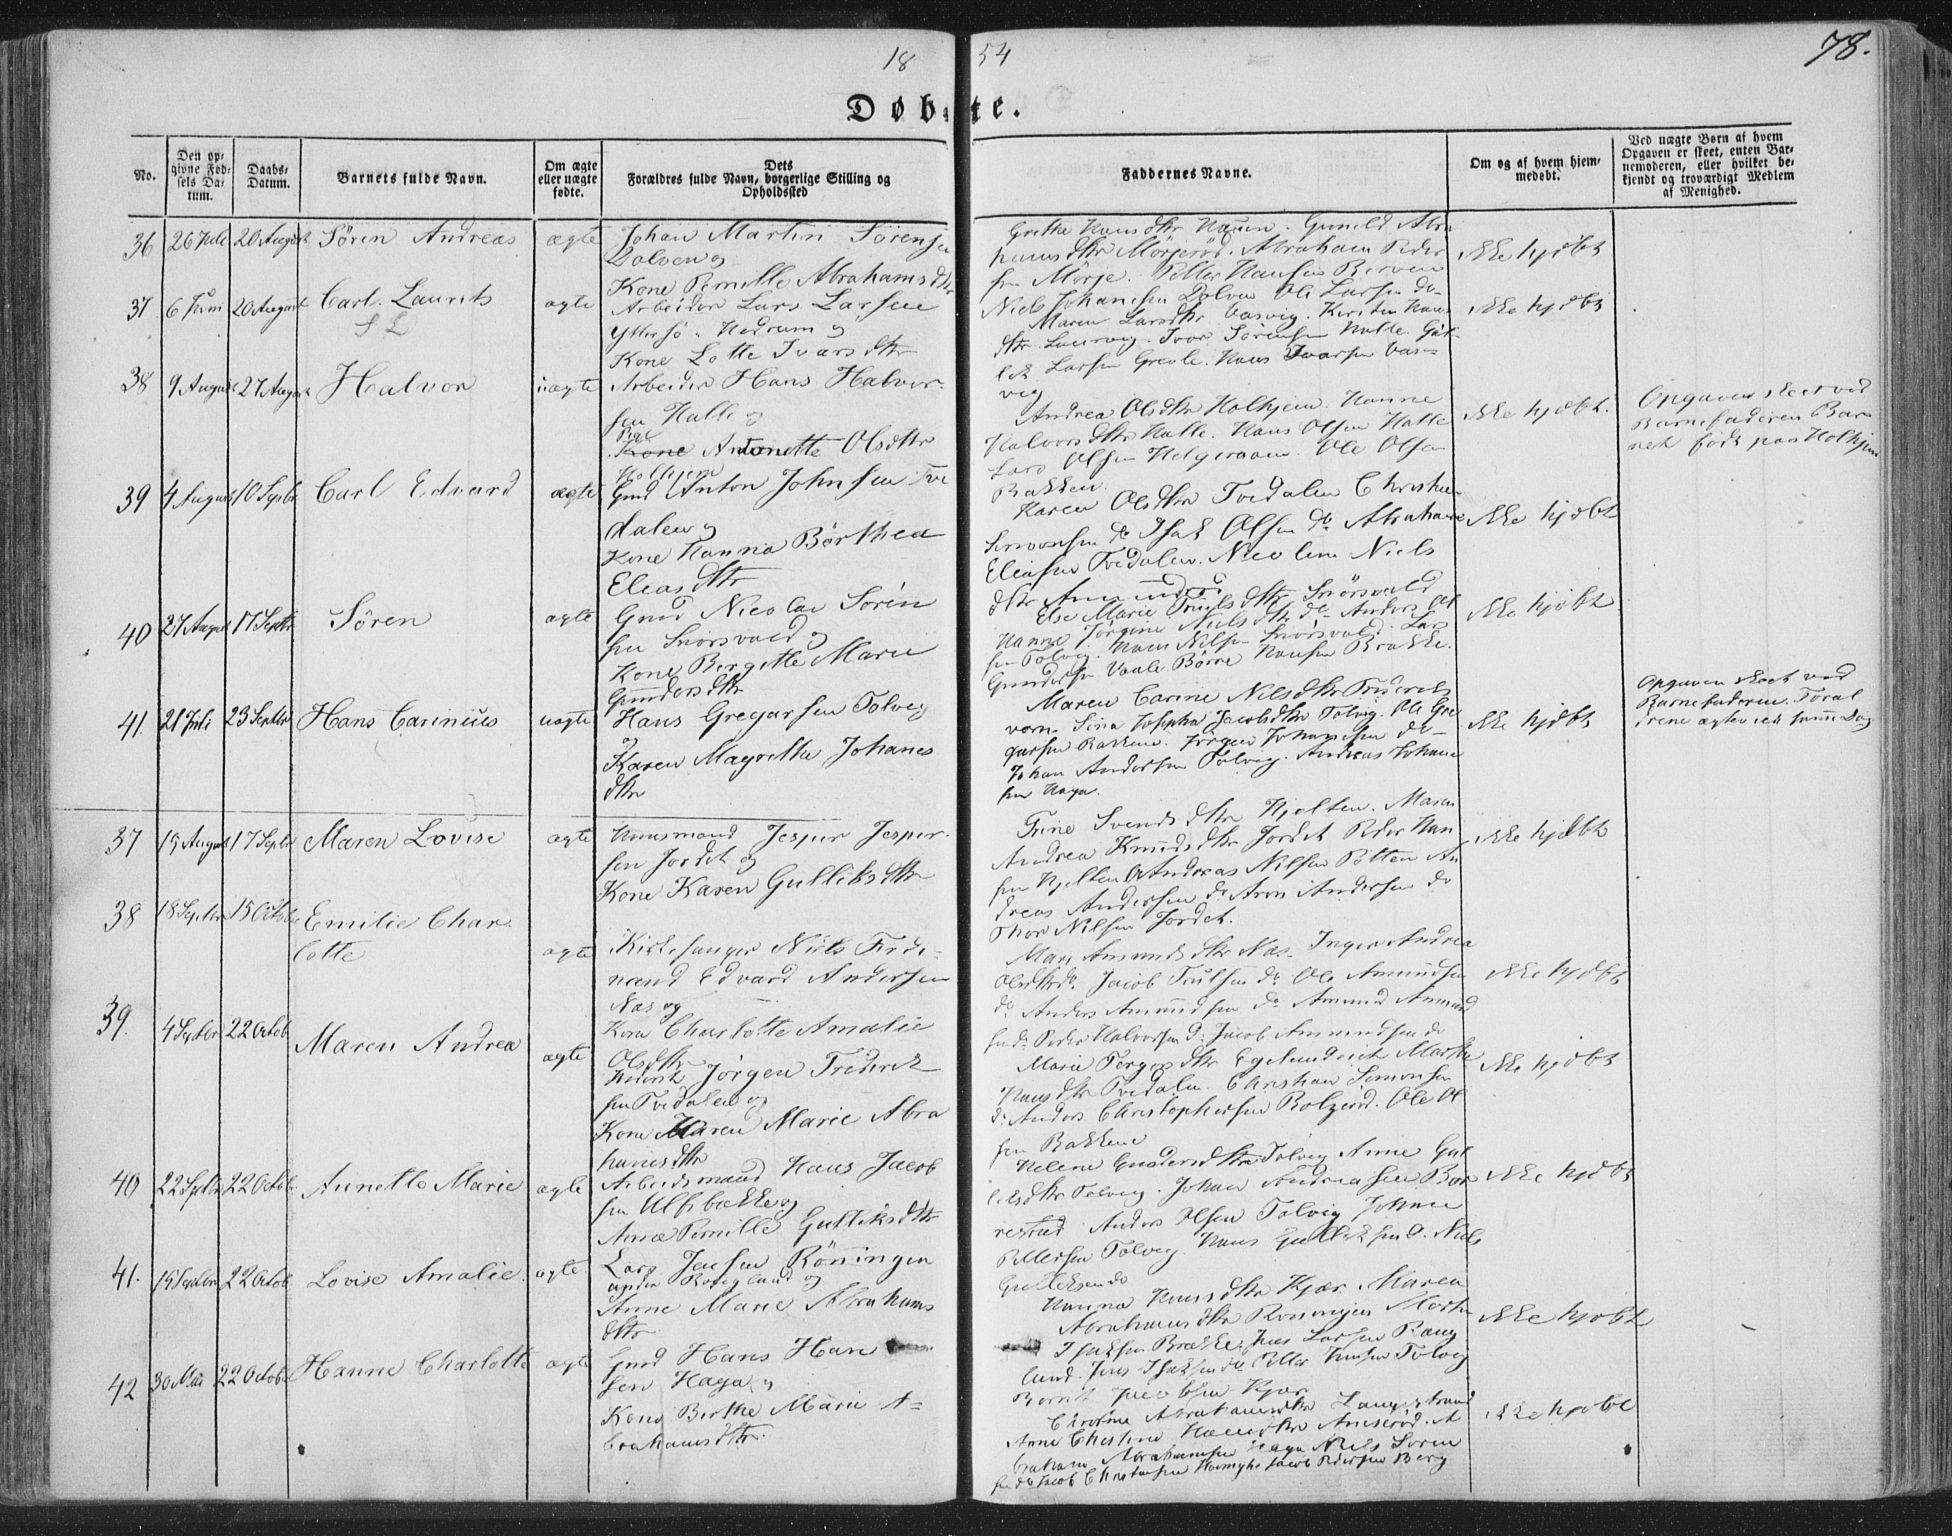 18 54
78.
Døbte.
No.
Den op-
givne Fød-
sels Da-
tum.
Daabs-
Datum.
Barnets fulde Navn.
Om ægte
eller uægte
fødte.
Dets
Forældres fulde Navn, borgerlige Stilling og
Opholdssted
Faddernes Navne.
Om og af hvem hjem-
medøbt.
Ved uægte Børn af hvem
Opgaven er skeet, enten Bar-
nemoderen, eller hvilket be-
kjendt og troværdigt Medlem
af Menighed.
36 26 Juli 20 August Søren Andreas ægte Johan Martin Sørensen
Dolven og
Kone Pernille Abrahamsdtr
Grethe Hansdtr Gunild Abra
hamsdtr Mørjerød. Abraham Peder
sen Mørje. Petter Hansen Berven
Niels Johansen Dolven Ole Larsen do
ikke hjdøbt
37 6 Juni 20 August Carl Laurits ægte Arbeider Lars Larsen
Yttersø. Hedrum og
Kone Lotte Ivarsdtr
Maren Larsdtr Vasvig. Kirsten Hans
dtr Laurvig. Ivar Sørensen Halle. Gul
lik Larsen Grevle. Hans Ivarsen Vas-
vig
ikke hjdøbt
38 9 August 27 August Halvor uægte Arbeider Hans Halvor-
sen Halle og
Pige
Kone Antonette Olsdtr
Holhjem
Andrea Olsdtr Holhjem. Hanne
Halvorsdtr Halle. Hans Olsen Halle
Lars Olsen Helgeroaen. Ole Olsen
Bakken
ikke hjdøbt.
Opgaven skeet ved
Barnefaderen Bar
net født paa Holhjem
39 4 August 10 Septbr Carl Edvard ægte Gmd Anton Johnsen Tve
dalen og
Kone Hanna Børthea
Eleasdtr
Karen Olsdtr Tvedalen Christen
Simonsen do Isak Olsen do Abraham
Eleasen Tvedalen. Nicoline Niels
dtr
ikke hjdøbt
40 27 August 17 Septbr Søren ægte Gmd Nicolai Søren
sen Snørsvald og
Kone Bergitte Marie
Gundersdtr
Else Marie Truelsdtr Snørsvald
Hanne Jørgine Nielsdtr do Anders Ol
sen Tolvig. Hans Nilsen Snørsvald. Lars
Gundersen Vaale. Børre Hansen Brække.
ikke hjdøbt
41. 21 Juli 23 Septbr Hans Carinius uægte Hans Gregarsen Tolvig
og
Karen Magrethe Johanes
dtr
Maren Carine Nilsdtr Frideriks
værn. Sina Josepha Jacobsdtr Tolvig. Ole Gre
garsen Bakkene. Jørgen Johannesen do
Johan Andersen Tolvig. Andreas Johane
sen Haga.
ikke hjdøbt
Opgaven skeet ved
Barnefaderen. Foræl
drene ægteviet samme Dag
37 19 August 17 Septbr Maren Lovise ægte Huusmand Jesper Jesper-
sen Jordet og
Kone Karen Gulliksdtr
Trine Svendsdtr Hjelten. Maren
Andrea Knudsdtr Jordet Peder Han
sen Hjelten Andreas Nilsen Pølten An
dreas Andersen do Aron Andersen do
Thor Nilsen Jordet.
ikke hjdøbt
38 18 Septbr 15 Octobr Emilie Char-
lotte ægte Kirkesanger Niels Ferdi-
nand Edvard Andersen
Næs og
Kone Charlotte Amalie
Olsdtr
Mari Amundsdtr Næs. Inger Andrea
Olsdtr do. Jacob Trulsen do Ole Amundsen
do Anders Amundsen do Amund Amund
sen do Peder Halvorsen do Jacob Amundsen do
ikke hjdøbt
39. 4 Septbr 22 Octob Maren Andrea ægte Jørgen Frederik
sen Tvedalen og
Kone Maren Marie Abra
hamsdtr
Maria Torgersdtr Marthe
Hansdtr Tvedalen. Christian Simonsen
do Anders Christophersen Bolzerød. Ole Ol
sen Bakkene
ikke hjdøbt
40 22 Septbr 22 Octob Annette Marie ægte Arbeidsmand Hans Jacob
sen Ulfsbakke og
Anne Pernille Gulliksdtr
Helene Gundersdtr Tolvig Anne Gul
liksdtr Tolvig. Johan Andreasen Bor
restad Anders Olsen Tolvig Johan
Pettersen Tolvig. Hans Gulliksen do. Niels
Gulliksen do
ikke hjdøbt
41. 19 Septbr 22 Octob Lovise Amalie. ægte Lars Jensen Rönningen
under Rougland og
Anne Marie Abrahams
dtr
Hanna Hansdtr Kjær. Maren
Abrahamsdtr Rønningen Marthe
Isaksen Brække, Jens Larsen Raug
lund. Jens Isaksen do Petter Hansen Tolvig
Bernt Jacobsen Kjær
ikke hjdøbt
42 30 Mai 22 Octobr Hanne Charlotte ægte Gmd Hans Han
sen Haga og
Kone Berthe Marie A-
brahamsdtr.
Christine Abrahamsdtr Langestrand
Anne Christine Hansdtr Anserød. A
braham Abrahamsen Haga Niels Søren
sen do Jacob Christensen Jacob Pedersen Berg
ikke hjdøbt